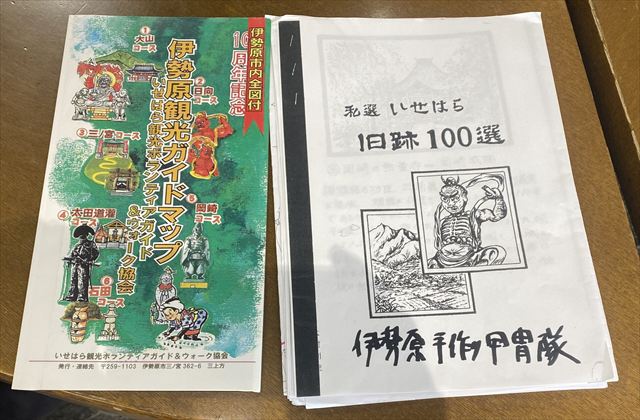 伊勢原市内全図付
10周年記念
伊勢原観光ガイドマップ
いせはら観光ボランティアガイド
&ウォーク協会
①
大山
コース
②
日向
コース
③三ノ宮コース
④太田道灌
コース
⑤
岡崎
コース
⑥
石田
コース
いせはら観光ボランティアガイド&ウォーク協会
発行・連絡先 〒259-1103 伊勢原市三ノ宮362-6 三上方
私選 いせはら
旧跡100選
伊勢原手作り甲冑隊